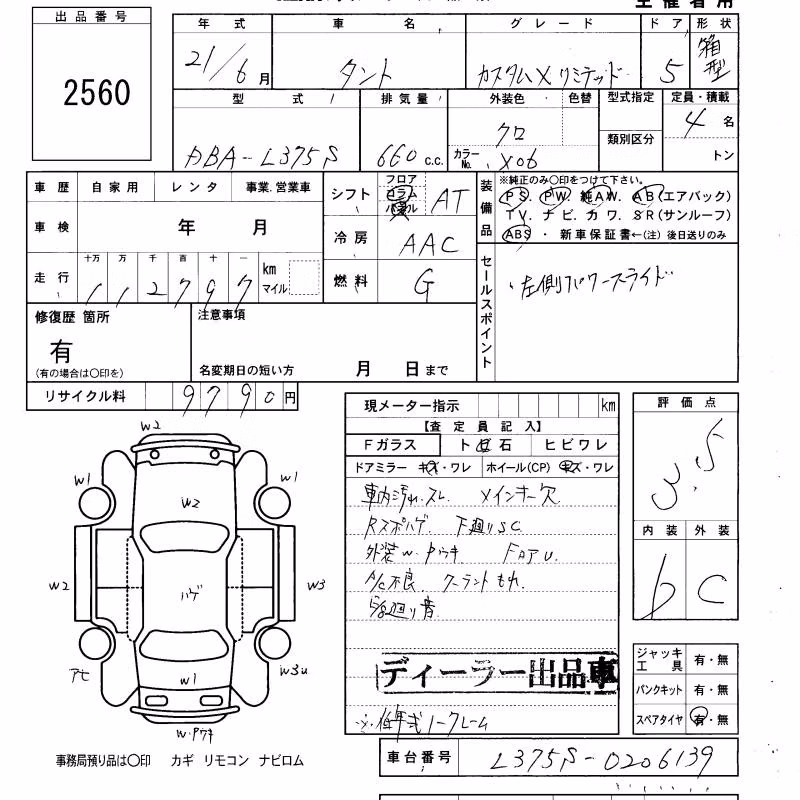 出品番号
2560
年式 車名 グレード ドア 形状
21/6月 タント カスタムXリミテッド 5 箱型
型式 排気量 外装色 色替 型式指定 定員・積載
類別区分
DBA-L375S 660 c.c. クロ カラーNo. X06 4名
トン
車歴 自家用 レンタ 事業.営業車
シフト フロア コラム パネル AT
装備品
※純正のみ○印をつけて下さい。
PS. PW. 純AW. AB(エアバック)
TV. ナビ. カワ. SR(サンルーフ)
ABS ・ 新車保証書←(注) 後日送りのみ
車検 年 月
冷房 AAC
走行 十万 万 千 百 十 一
112797 km マイル
燃料 G
セールスポイント
・左側パワースライド
修復歴 箇所
有
(有の場合は○印を)
注意事項
名変期日の短い方 月 日まで
リサイクル料 9790円
現メーター指示 km
【査定員記入】
Fガラス トビ石 ヒビワレ
ドアミラー キズ・ワレ ホイール(CP) キズ・ワレ
車内汚れ.スレ. メインキー欠
Rスポハゲ. 下廻りSC
外装w.
A/C不良. クーラントもれ.
廻り音
ディーラー出品車
※低年式ノークレーム
評価点
3.5
内装 外装
b C
ジャッキ工具 有・無
パンクキット 有・無
スペアタイヤ 有・無
W2
W1 W1
W2
W2 ハゲ W3
W1
アセ W3U
W.Pワキ
事務局預り品は○印 カギ リモコン ナビロム
車台番号 L375S-0206139